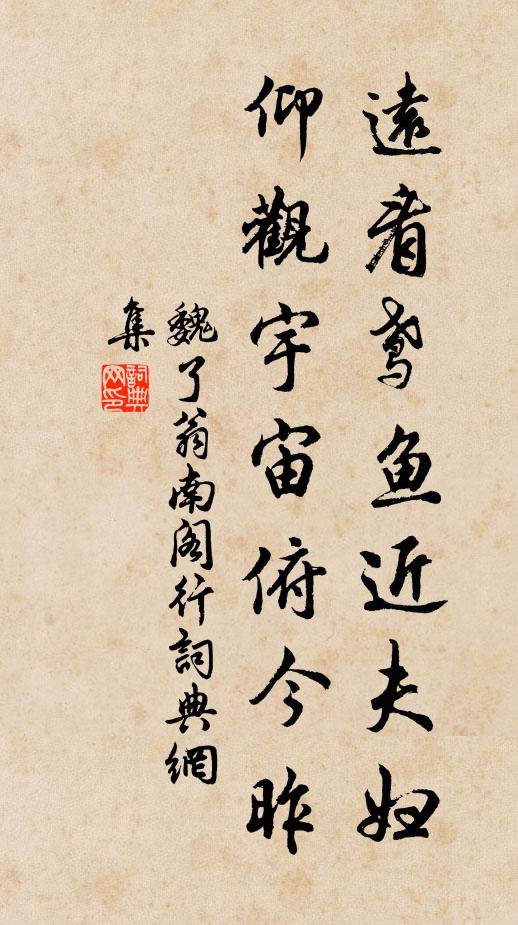 遠看鸢鱼近夫妇
仰觀宇宙俯今昨
魏了翁南阁行詞典網
集
詞典网印